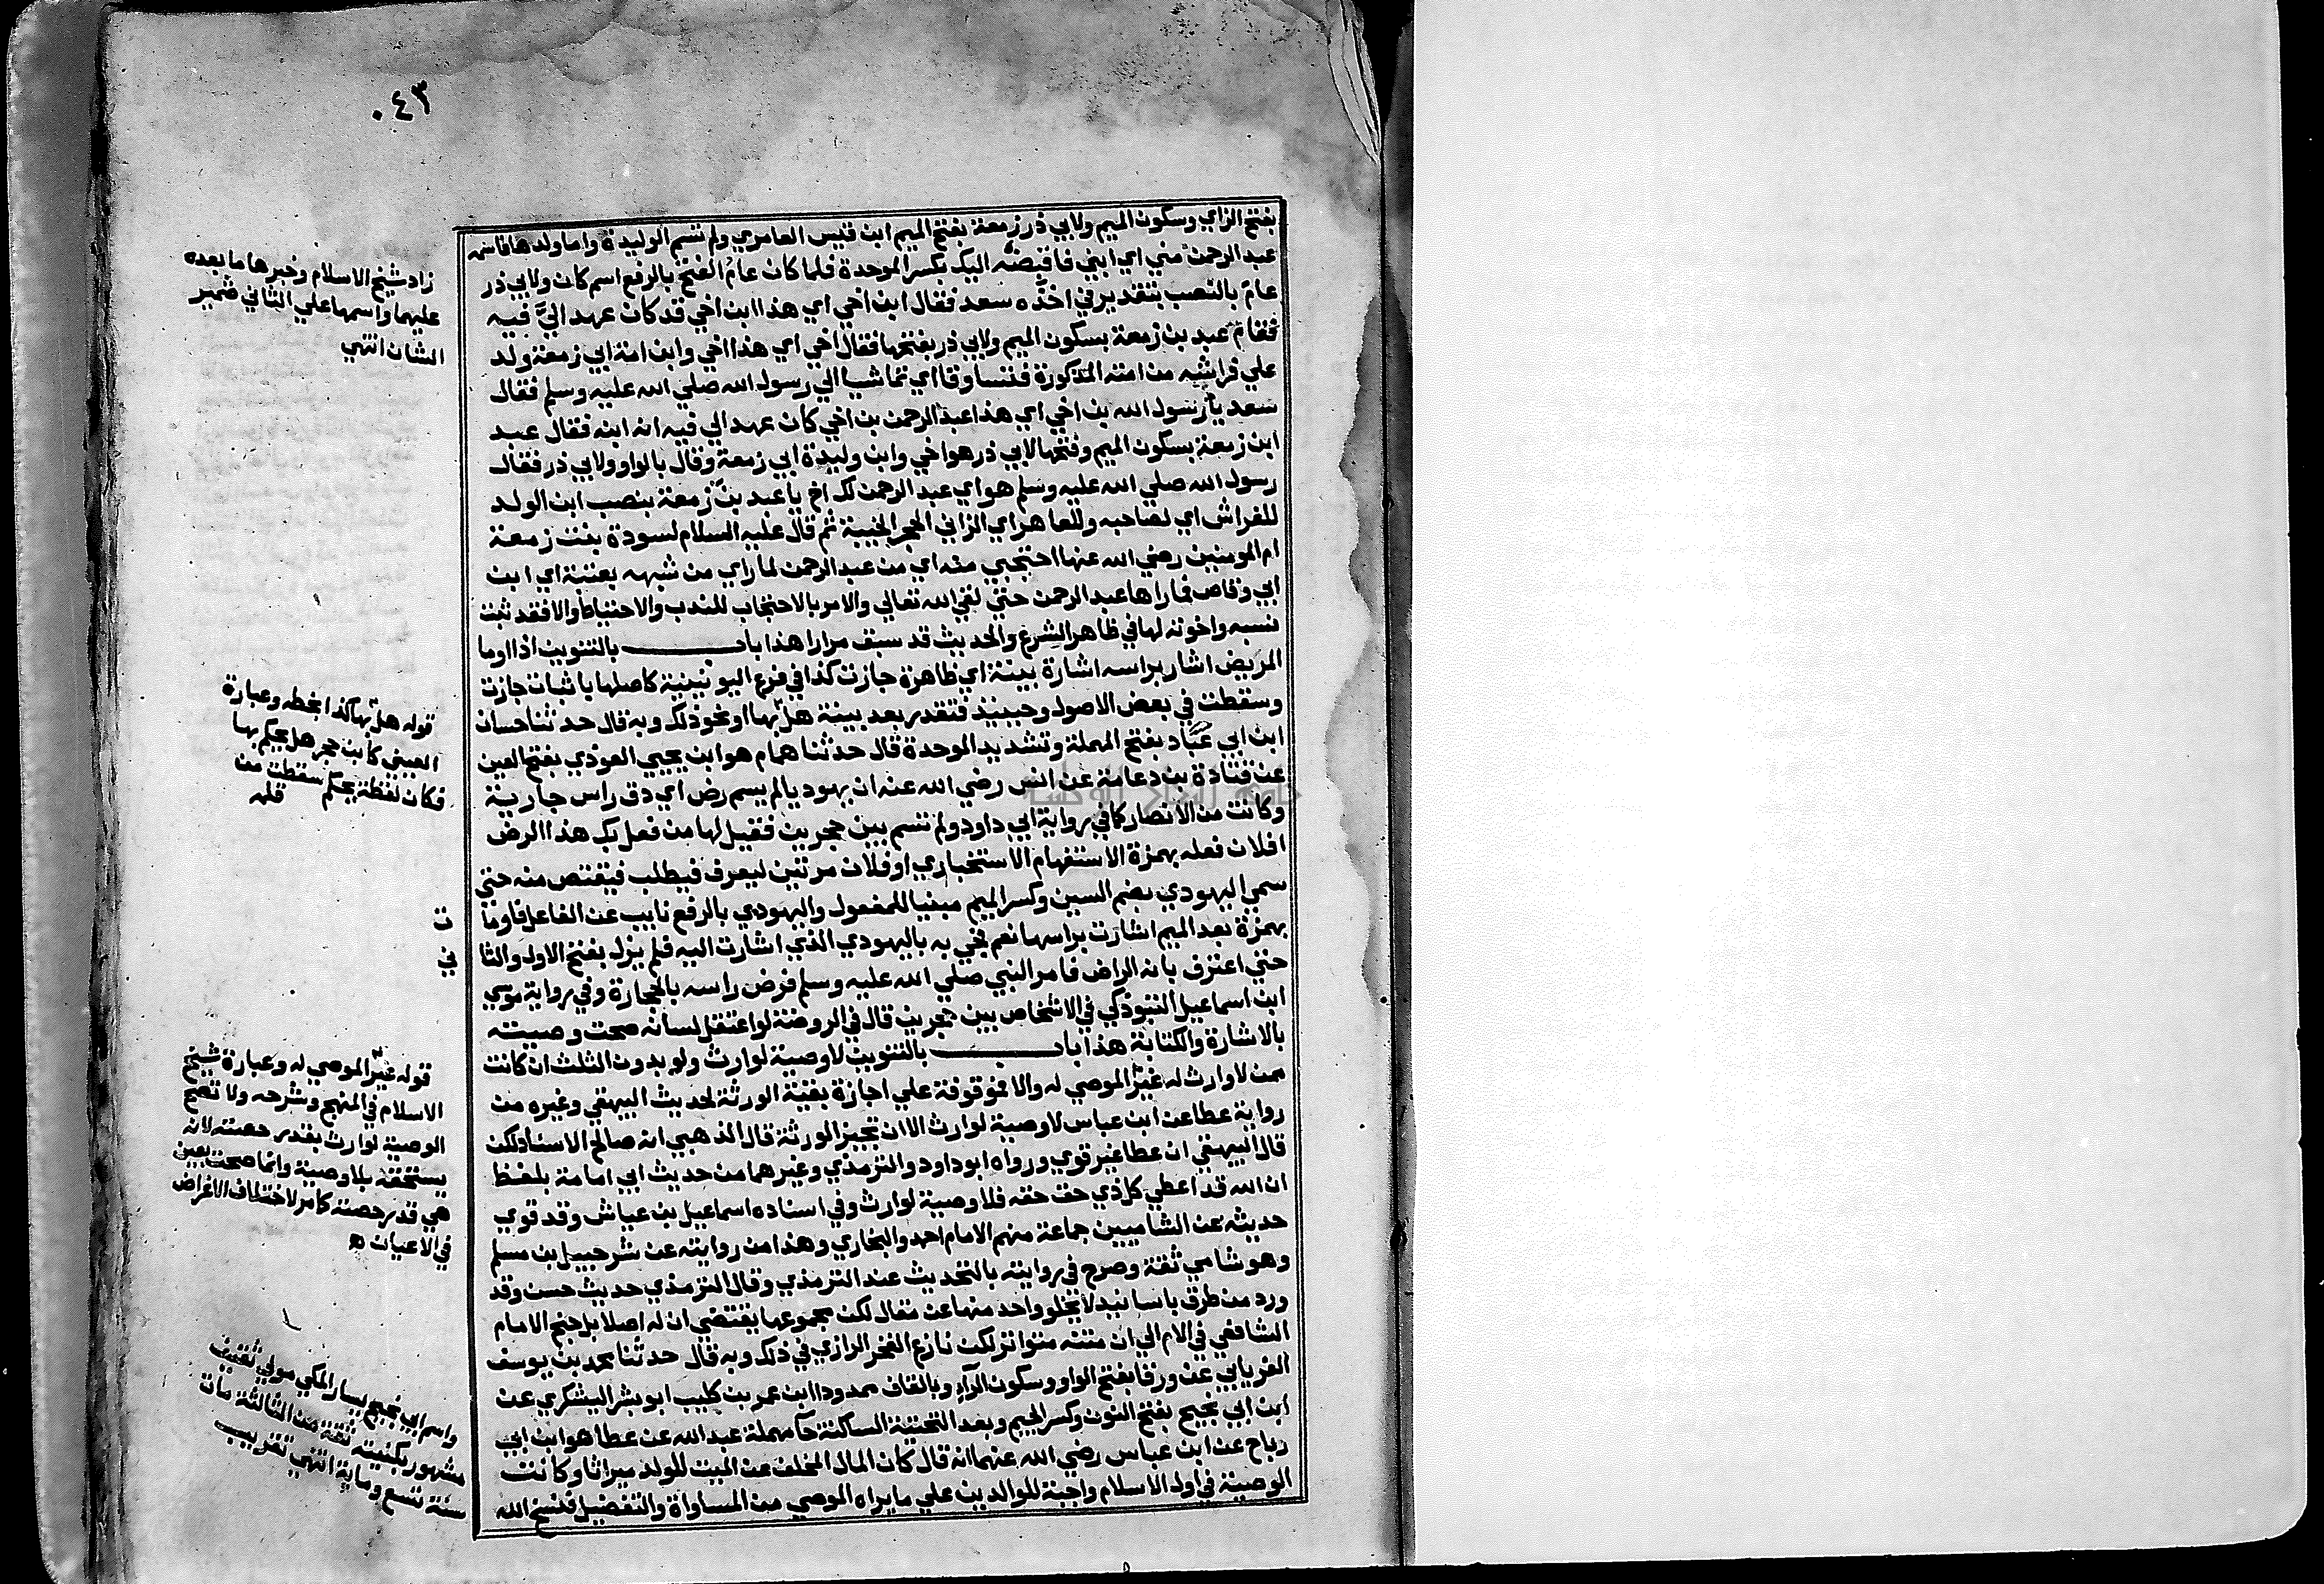 ٠٤٣
بفتح الزاي وسكون الميم ولابي ذر زمعة بفتح الميم ابن قيس العامري ولم تسم الوليدة واما ولدها فاسمه
عبد الرحمن مني اي ابني فاقبضه اليك بكسر الموحدة فلما كان عام الفتح بالرفع اسم كان ولابي ذر
عام بالنصب بتقدير في اخذه سعد فقال ابن اخي اي هذا ابن اخي قد كان عهد اليَّ فيه
فقام عبد بن زمعة بسكون الميم ولابي ذر بفتحها فقال اخي اي هذا اخي وابن امة ابي زمعة ولد
علي فراشه من امته المذكورة فتساوقا اي تماشيا الي رسول الله صلي الله عليه وسلم فقال
سعد يا رسول الله بن اخي اي هذا عبد الرحمن بن اخي كان عهد الي فيه انه ابنه فقال عبد
ابن زمعة بسكون الميم وفتحها لابي ذر هو اخي وابن وليدة ابي زمعة وقال بالواو ولابي ذر فقال
رسول الله صلي الله عليه وسلم هو اي عبد الرحمن لك اخ يا عبد بن زمعة بنصب ابن الولد
للفراش اي لصاحبه وللعاهر اي الزاني الحجر الخيبة ثم قال عليه السلام لسودة بنت زمعة
ام المومنين رضي الله عنها احتجبي منه اي من عبد الرحمن لما راي من شبهه بعتبة اي ابن
ابي وقاص فما راها عبد الرحمن حتي لقي الله تعالي والامر بالاحتجاب للندب والاحتياط والا فقد ثبت
نسبه واخوته لها في ظاهر الشرع والحديث قد سبق مرارا هذا باب بالتنوين اذا اوما
المريض اشار براسه اشارة بينة اي ظاهرة جازت كذا في فرع اليونينية كاصلها باثبات جازت
وسقطت في بعض الاصول وحينيذ فتقدر بعد بينة هل بها او نحو ذلك وبه قال حدثنا حسان
ابن ابي عباد بفتح المهملة وتشديد الموحدة قال حدثنا همام هو ابن يحيي العوذي بفتح العين
عن قتادة بن دعامة عن انس رضي الله عنه ان يهوديا لم يسم رض اي دق راس جارية
وكانت من الانصار كما في رواية ابي داود ولم تسم بين حجرين فقيل لها من فعل بك هذا الرض
افلان فعله بهمزة الاستفهام الاستخباري او فلان مرتين ليعرف فيطلب فيقتص منه حتي
سمي اليهودي بضم السين وكسر الميم مبنيا للمفعول واليهودي بالرفع نايب عن الفاعل فاومات
بهمزة بعد الميم اشارت براسها نعم فجي به باليهودي الذي اشارت اليه فلم يزل بفتح الاول والثاني
حتي اعترف بانه الراض فامر النبي صلي الله عليه وسلم فرض راسه بالحجارة وفي رواية موسي
ابن اسماعيل التبوذكي في الاشخاص بين حجرين قال في الروضة لو اعتقل لسانه صحت وصيته
بالاشارة والكتابة هذا باب بالتنوين لا وصية لوارث ولو بدون الثلث ان كانت
ممن لا وارث له غير الموصي له والا فموقوفة علي اجازة بقية الورثة لحديث البيهقي وغيره من
رواية عطا عن ابن عباس لا وصية لوارث الا ان تجيز الورثة قال الذهبي انه صالح الاسناد لكن
قال البيهقي ان عطا غير قوي ورواه ابو داود والترمذي وغيرهما من حديث ابي امامة بلفظ
ان الله قد اعطي كل ذي حق حقه فلا وصية لوارث وفي اسناده اسماعيل بن عياش وقد قوي
حديثه عن الشاميين جماعة منهم الامام احمد والبخاري وهذا من روايته عن شرحبيل بن مسلم
وهو شامي ثقة وصرح في روايته بالتحديث عند الترمذي وقال الترمذي حديث حسن وقد
ورد من طرق باسانيد لا تخلو واحد منها عن مقال لكن مجموعها يقتضي ان له اصلا بل جنح الامام
الشافعي في الام الي ان متنه متواتر لكن نازع الفخر الرازي في ذلك وبه قال حدثنا محمد بن يوسف
الفريابي عن ورقا بفتح الواو وسكون الرآء وبالقاف ممدودا ابن عمر بن كليب ابو بشر اليشكري عن
ابن ابي نجيح بفتح النون وكسر الجيم وبعد التحتية الساكنة حآ مهملة عبد الله عن عطا هو ابن ابي
رباح عن ابن عباس رضي الله عنهما انه قال كان المال المخلف عن الميت للولد ميراثا وكانت
الوصية في اول الاسلام واجبة للوالدين علي ما يراه الموصي من المساواة والتفضيل فنسخ الله
زاد شيخ الاسلام وخبرها ما بعده
عليهما واسمها علي الثاني ضمير
الشان انتهي
قوله هل بها كذا بخطه وعبارة
العيني كابن حجر هل يحكم بها
فكان لفظة يحكم سقطت من
قلمه
قوله غير الموصي له وعبارة شيخ
الاسلام في المنهج وشرحه ولا تصح
الوصية لوارث بقدر حصته لانه
يستحقه بلا وصية وانما صحت بعين
هي قدر حصته كما مر لاختلاف الاغراض
في الاعيان ه
واسم ابي نجيح يسار المكي مولي ثقيف
مشهور بكنيته ثقة من الثالثة مات
سنة تسع وماية انتهي تقريب